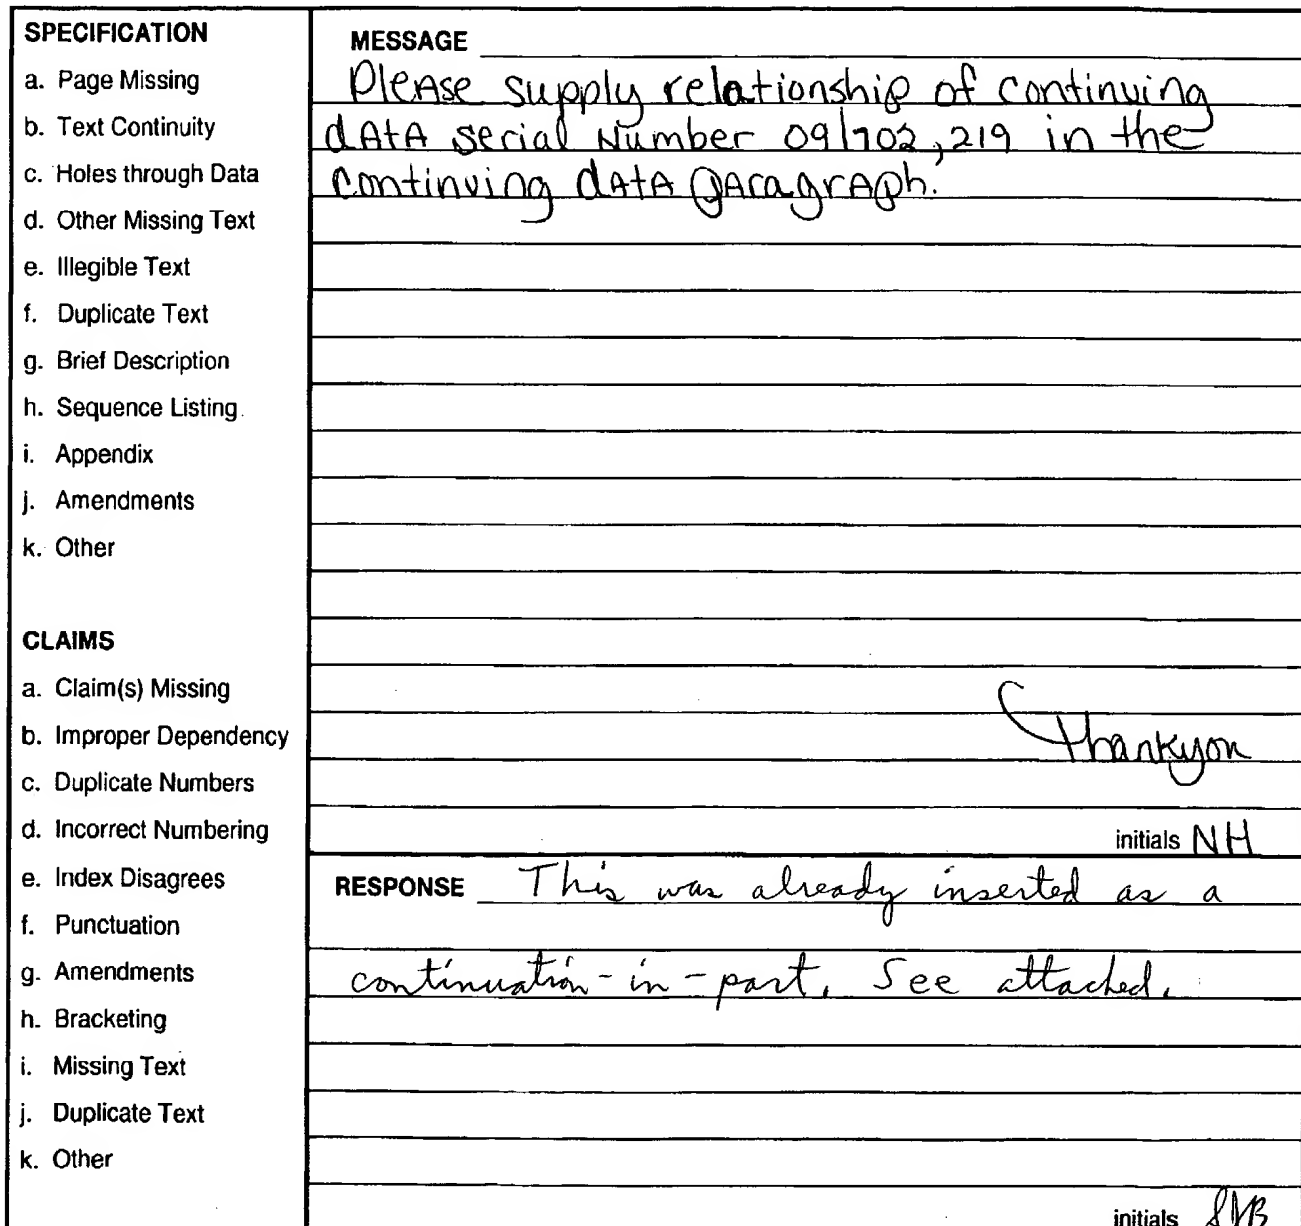 SPECIFICATION
a. Page Missing
b. Text Continuity
c. Holes through Data
d. Other Missing Text
e. Illegible Text
f. Duplicate Text
g. Brief Description
h. Sequence Listing
i. Appendix
j. Amendments
k. Other
CLAIMS
a. Claim(s) Missing
b. Improper Dependency
c. Duplicate Numbers
d. Incorrect Numbering
e. Index Disagrees
f. Punctuation
g. Amendments
h. Bracketing
i. Missing Text
j. Duplicate Text
k. Other
MESSAGE
Please supply relationship of continuing
data serial Number 09/702,219 in the
continuing data paragraph.
Thankyou
initials NH
RESPONSE This was already inserted as a
continuation-in-part. See attached.
initials